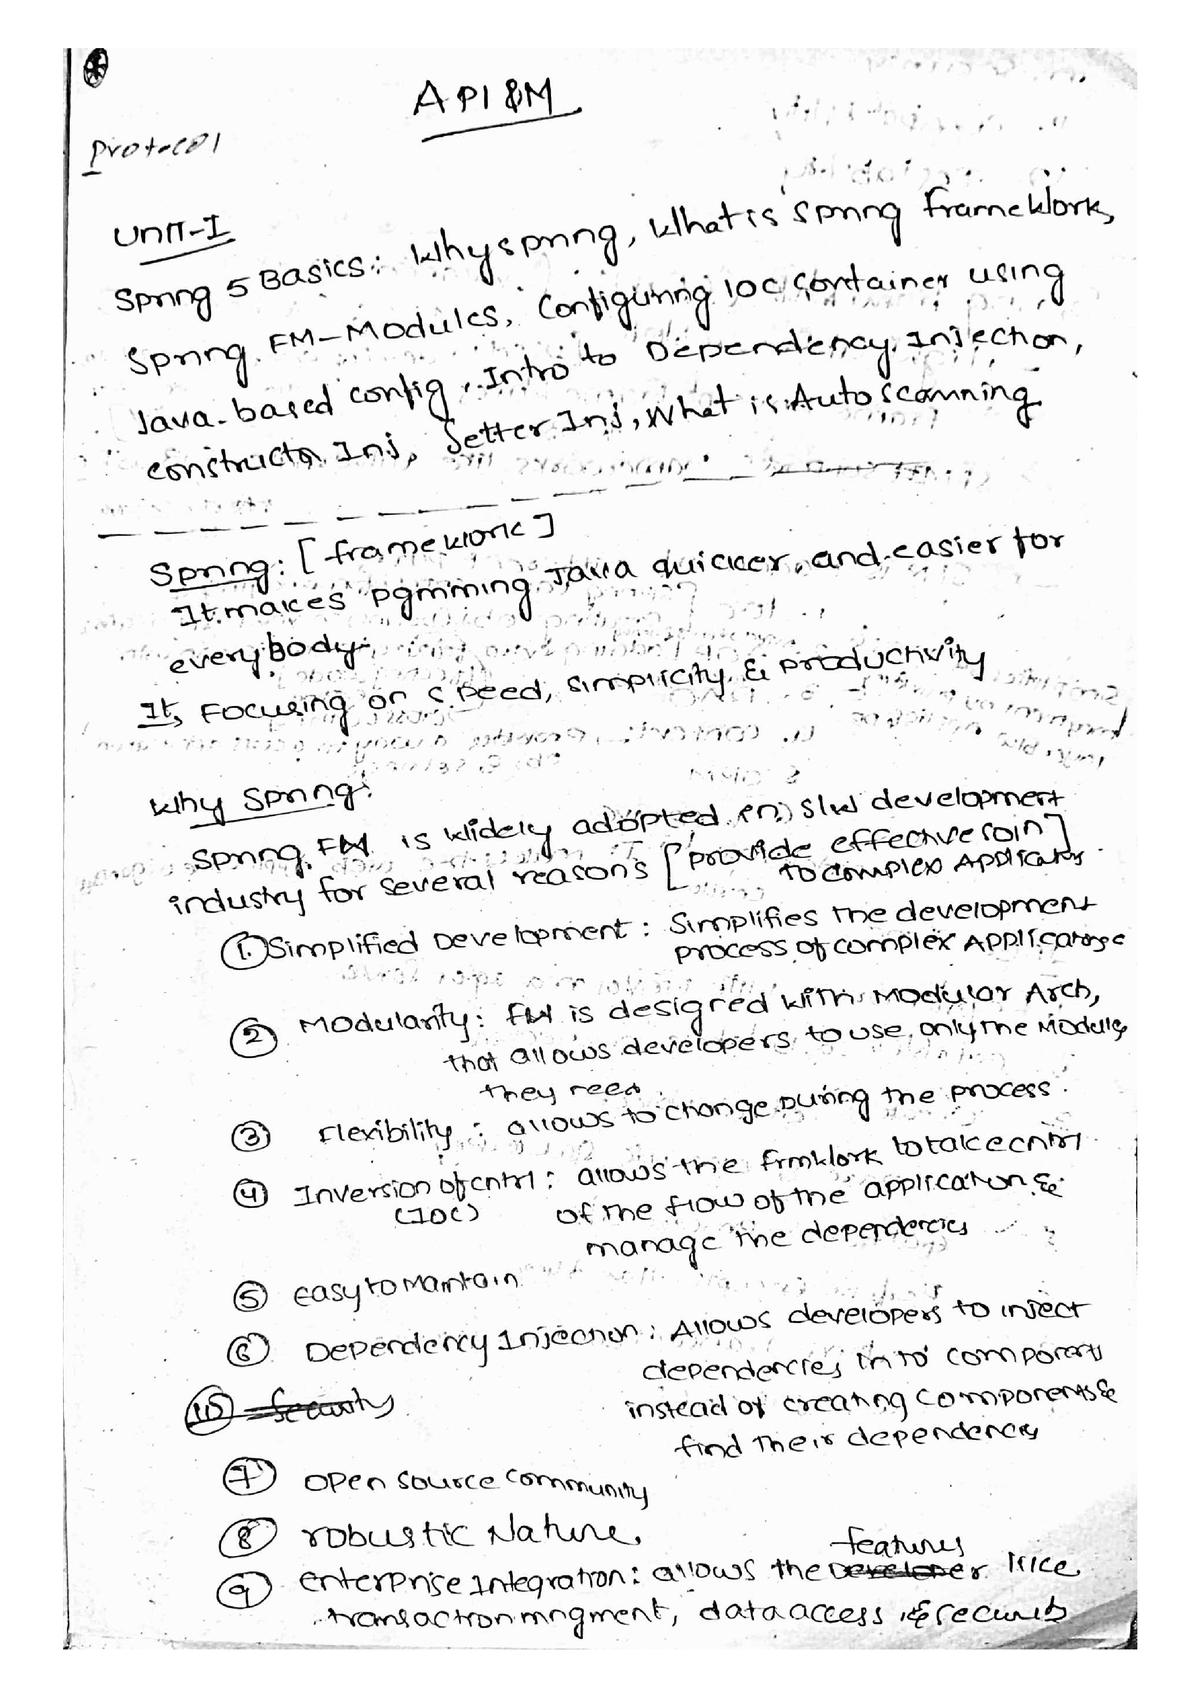 API & M
Protocol
Unit-I
Spring 5 Basics: Why spring, What is Spring Framework,
Spring FM-Modules, Configuring IOC container using
Java-based config, Intro to Dependency Injection,
constructor Inj, Setter Inj, What is Autoscanning
Spring: [framework]
It makes pgmming Java quicker, and easier for
everybody.
It, Focusing on speed, simplicity & productivity
Why Spring:
Spring FW is widely adopted in s/w development
industry for several reasons [provide effective soln]
to complex Applicatios
1. Simplified Development: Simplifies the development
process of complex Applications
2 Modularity: FW is designed with Modular Arch,
that allows developers to use only the Modules
they need
3 Flexibility: allows to change During the process.
4 Inversion of cntrl: allows the frmwork to take cntrl
(IOC) of the flow of the application &
manage the dependencies
5 easy to Maintain
6 Dependency Injection: Allows developers to inject
dependencies in to components
instead of creating components &
find their dependencies
10 Security
7 open source community
8 robustic Nature.
features
9 enterprise Integration: allows the Developer like
transaction mngment, data access & security